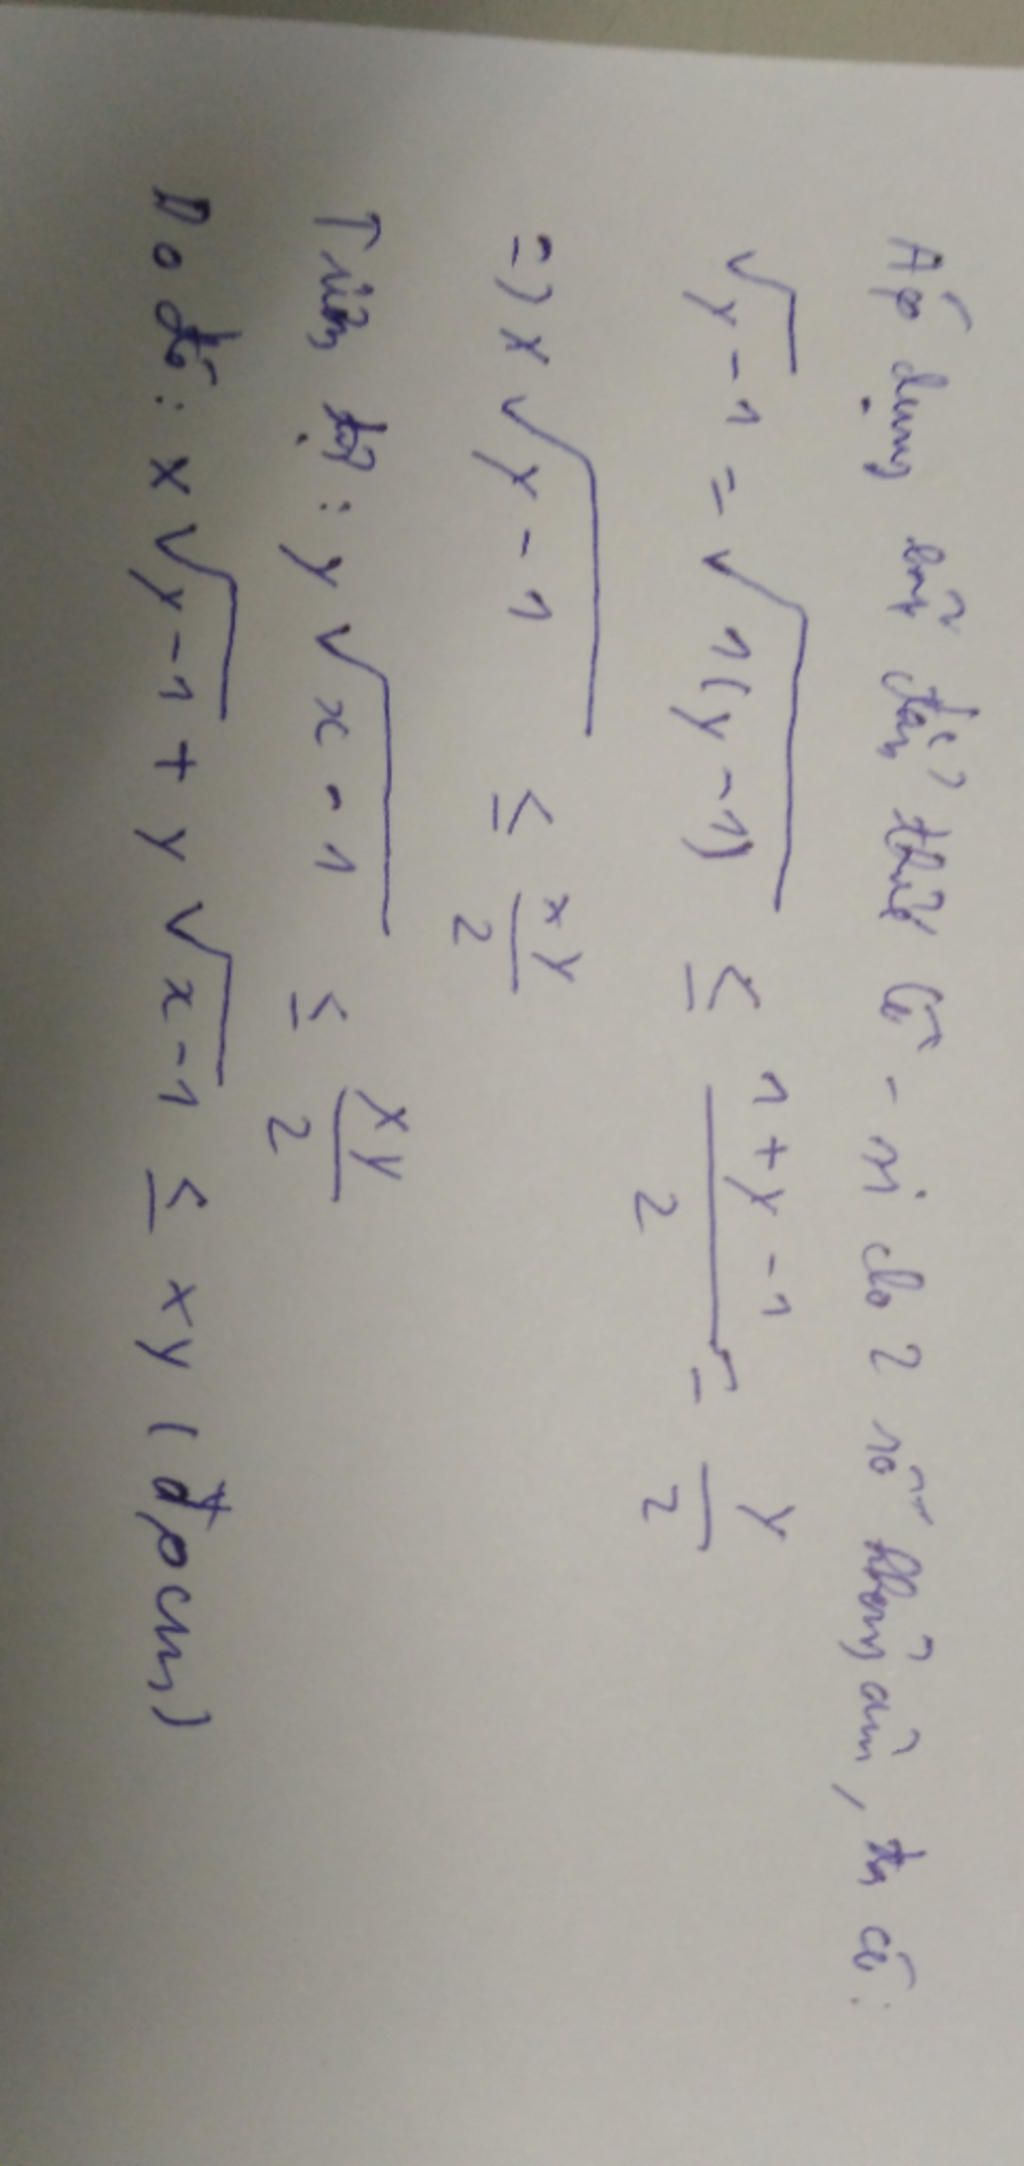 Áp dụng bất đẳng thức Cô-si cho 2 số không âm, ta có:
√y-1 = √1(y-1) ≤ 1+y-1/2 = y/2
=> x√y-1 ≤ xy/2
Tương tự: y√x-1 ≤ xy/2
Do đó: x√y-1 + y√x-1 ≤ xy (đpcm)